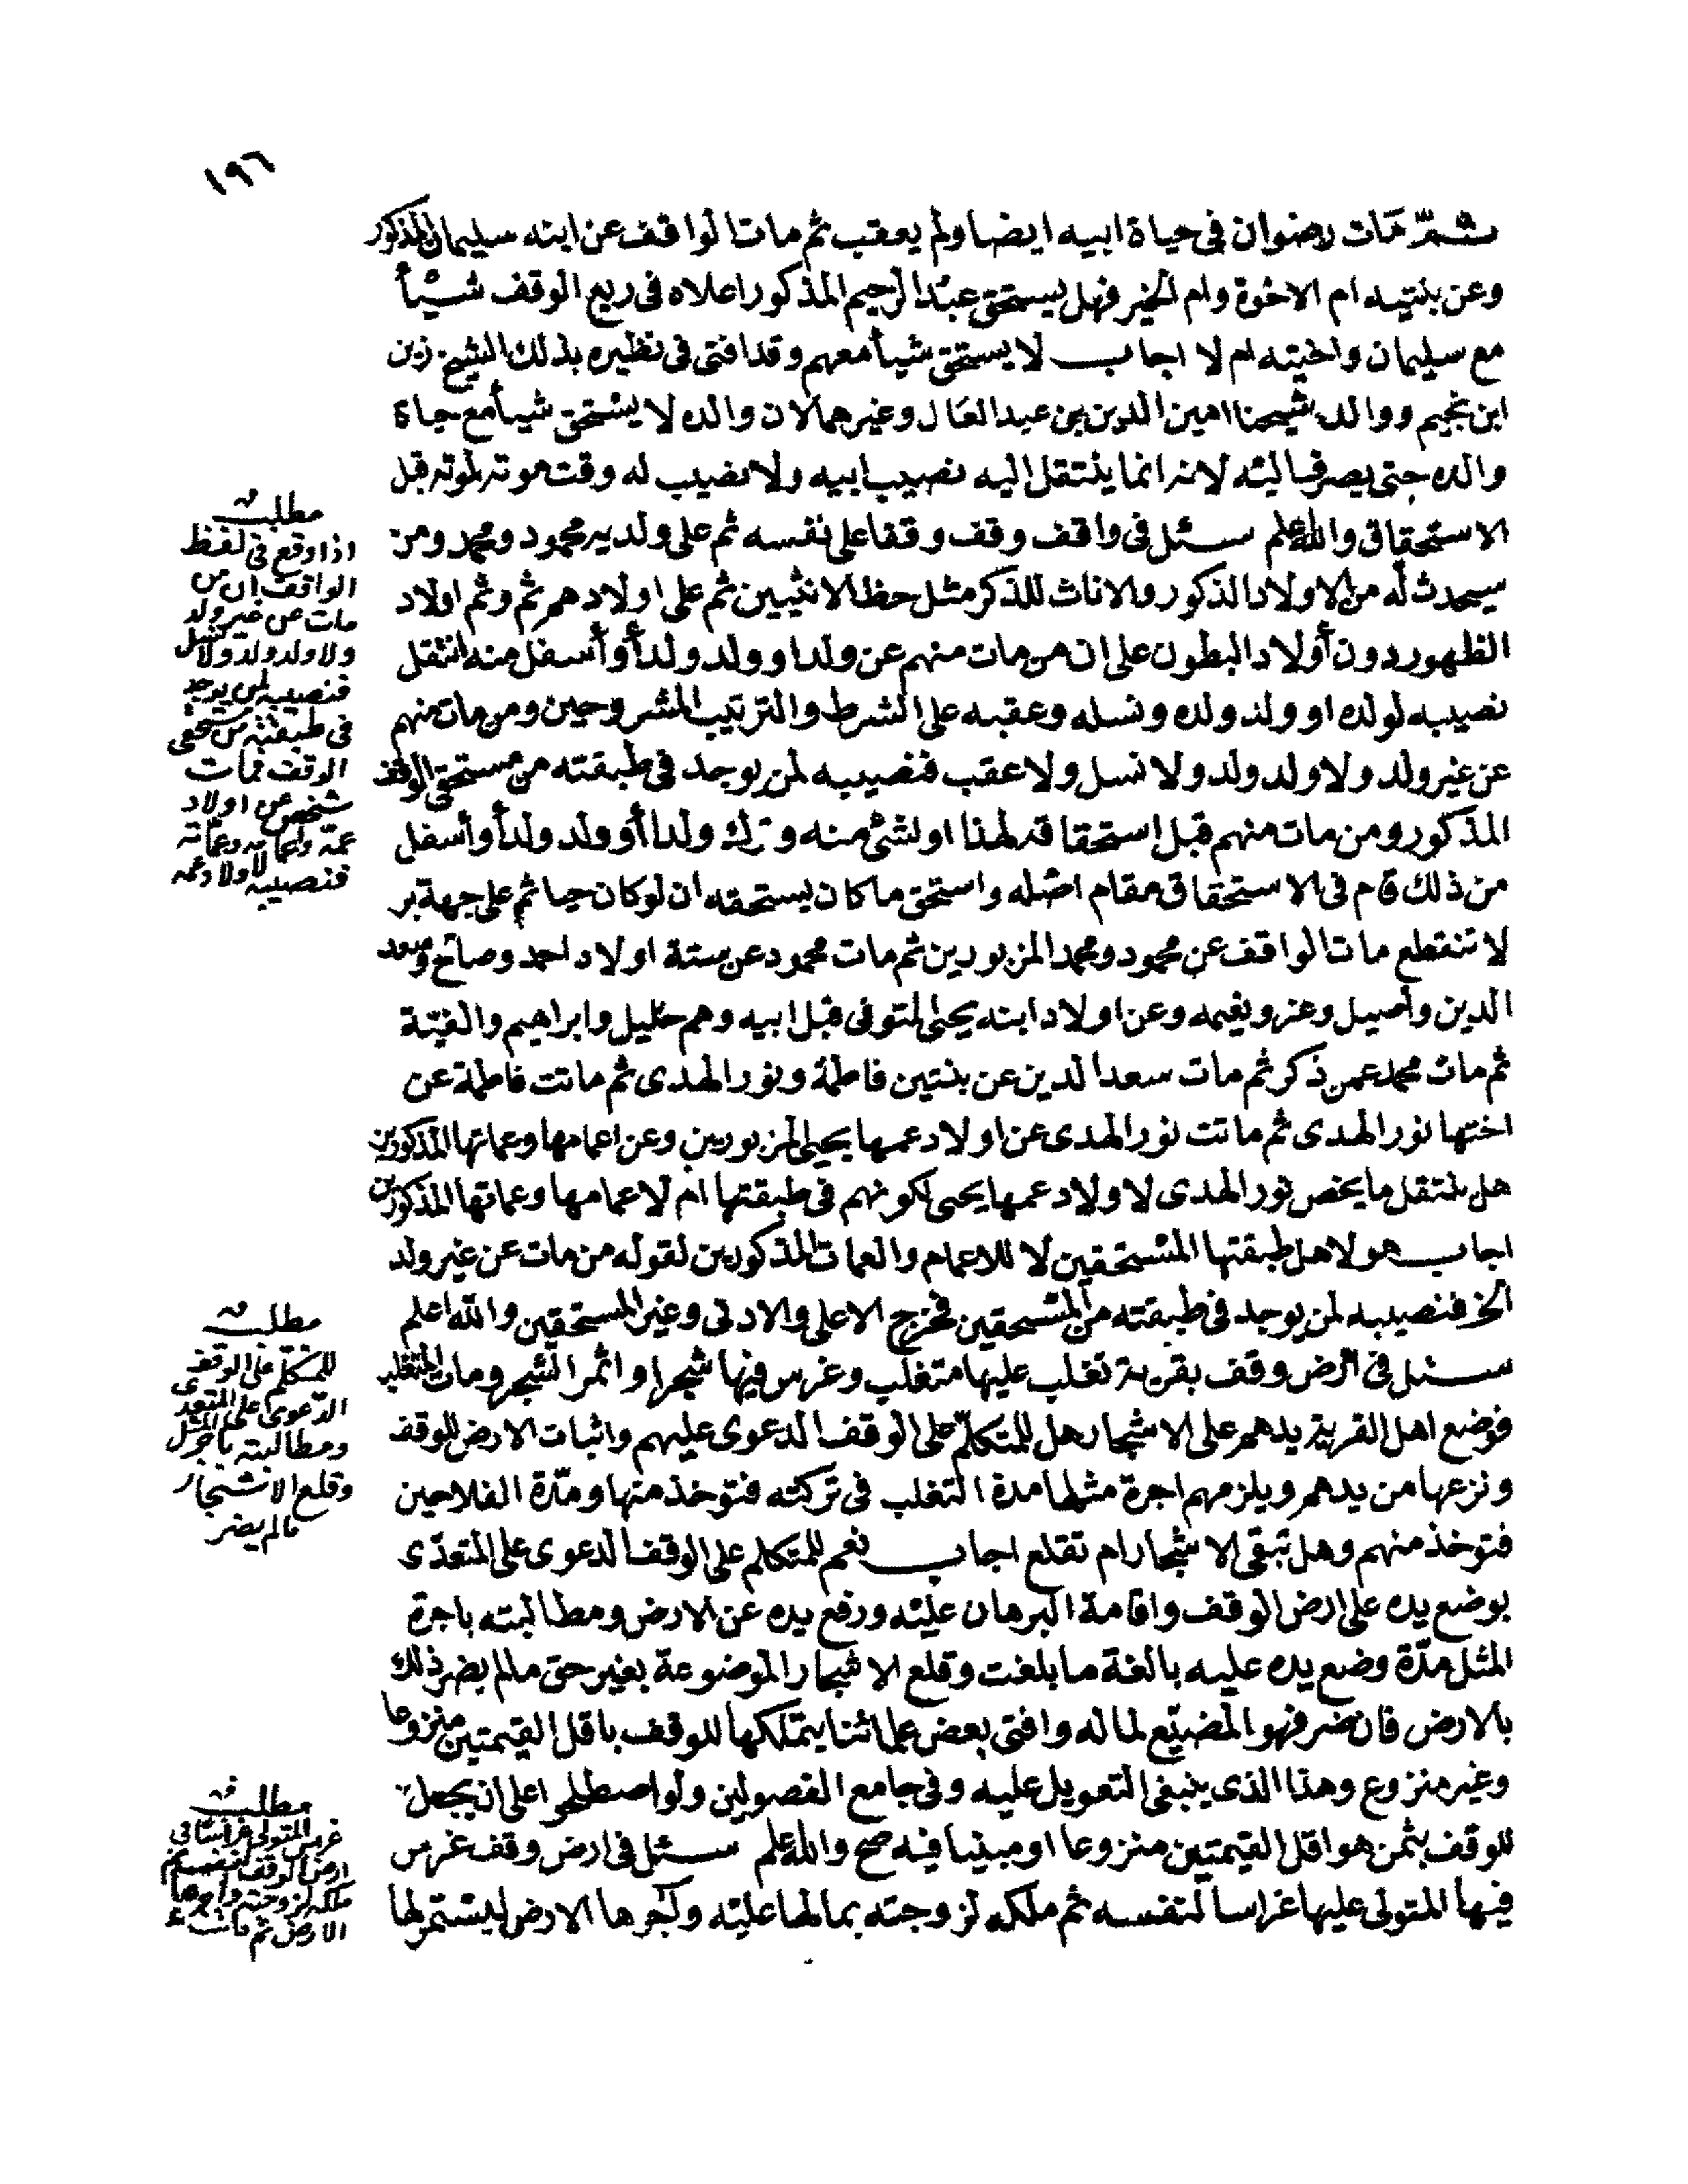 ١٩٦
ثم مات رضوان فى حياة ابيه ايضا ولم يعقب ثم مات الواقف عن ابنه سليمان المذكور
وعن بنتيه ام الاخوة وام الخير فهل يستحق عبد الرحيم المذكور اعلاه فى ريع الوقف شيأ
مع سليمان واختيه ام لا اجاب لا يستحق شيأ معهم وقد افتى فى نظيره بذلك الشيخ زين
ابن نجيم ووالد شيخنا امين الدين بن عبد العال وغيرهما لان والده لا يستحق شيأ مع حياة
والده حتى يصرف اليه لانه انما ينتقل اليه نصيب ابيه ولا نصيب له وقت موته لموته قبل
الاستحقاق والله اعلم سئل فى واقف وقف وقفا على نفسه ثم على ولديه محمود ومحمد ومن
سيحدث له من الاولاد الذكور والاناث للذكر مثل حظ الانثيين ثم على اولادهم ثم وثم اولاد
الظهور دون أولاد البطون على ان من مات منهم عن ولد او ولد ولد أو أسفل منه انتقل
نصيبه لولده او ولد ولده ونسله وعقبه على الشرط والترتيب المشروحين ومن مات منهم
عن غير ولد ولا ولد ولد ولا نسل ولا عقب فنصيبه لمن يوجد فى طبقته من مستحقى الوقف
المذكور ومن مات منهم قبل استحقاقه لهذا او لشئ منه وترك ولدا أو ولد ولد أو أسفل
من ذلك قام فى الاستحقاق مقام اصله واستحق ما كان يستحقه ان لو كان حيا ثم على جهة بر
لا تنقطع مات الواقف عن محمود ومحمد المزبورين ثم مات محمود عن ستة اولاد احمد وصالح وسعد
الدين وأصيل وعز ونغمه وعن اولاد ابنه يحيى المتوفى قبل ابيه وهم خليل وابراهيم والغيتة
ثم مات محمد عمن ذكر ثم مات سعد الدين عن بنتين فاطمة ونور الهدى ثم ماتت فاطمة عن
اختها نور الهدى ثم ماتت نور الهدى عن اولاد عمها يحيى المزبورين وعن اعمامها وعماتها المذكورين
هل ينتقل ما يخص نور الهدى لاولاد عمها يحيى لكونهم فى طبقتها ام لاعمامها وعماتها المذكورين
اجاب هو لاهل طبقتها المستحقين لا للاعمام والعمات المذكورين لقوله من مات عن غير ولد
الخ فنصيبه لمن يوجد فى طبقته من المستحقين فخرج الاعلى والادنى وغير المستحقين والله اعلم
سئل فى ارض وقف بقرية تغلب عليها متغلب وغرس فيها شجرا واثمر الشجر ومات المتغلب
فوضع اهل القرية يدهم على الاشجار هل للمتكلم على الوقف الدعوى عليهم واثبات الارض للوقف
ونزعها من يدهم ويلزمهم اجرة مثلها مدة التغلب فى تركته فتوخذ منها ومدّة الفلاحين
فتوخذ منهم وهل تبقى الاشجار ام تقلع اجاب نعم للمتكلم على الوقف الدعوى على المتعدّى
بوضع يده على ارض الوقف واقامة البرهان عليه ورفع يده عن الارض ومطالبته باجرة
المثل مدّة وضع يده عليه بالغة ما بلغت وقلع الاشجار الموضوعة بغير حق ما لم يضر ذلك
بالارض فان ضر فهو المضيّع لماله وافتى بعض علمائنا يتملكها للوقف باقل القيمتين منزوعا
وغير منزوع وهذا الذى ينبغى التعويل عليه وفى جامع الفصولين ولو اصطلحوا على ان يجعل
للوقف بثمن هو اقل القيمتين منزوعا او مبنيا فيه صح والله اعلم سئل فى ارض وقف غرس
فيها المتولى عليها غراسا لنفسه ثم ملكه لزوجته بما لها عليه وآجرها الارض ليستمر لها
مطلب
اذا وقع فى لفظ
الواقف ان من
مات عن غير ولد
ولا ولد ولد ولا نسل
فنصيبه لمن يوجد
فى طبقته من مستحقى
الوقف فمات
شخص عن اولاد
عمه واعمامه وعماته
فنصيبه لاولاد عمه
مطلب
للمتكلم على الوقف
الدعوى على المتعدى
ومطالبته باجر المثل
وقلع الاشجار
ما لم يضر
مطلب
غرس المتولى غراسا فى
ارض الوقف لنفسه ثم
ملكه لزوجته وآجرها
الارض ثم ماتت